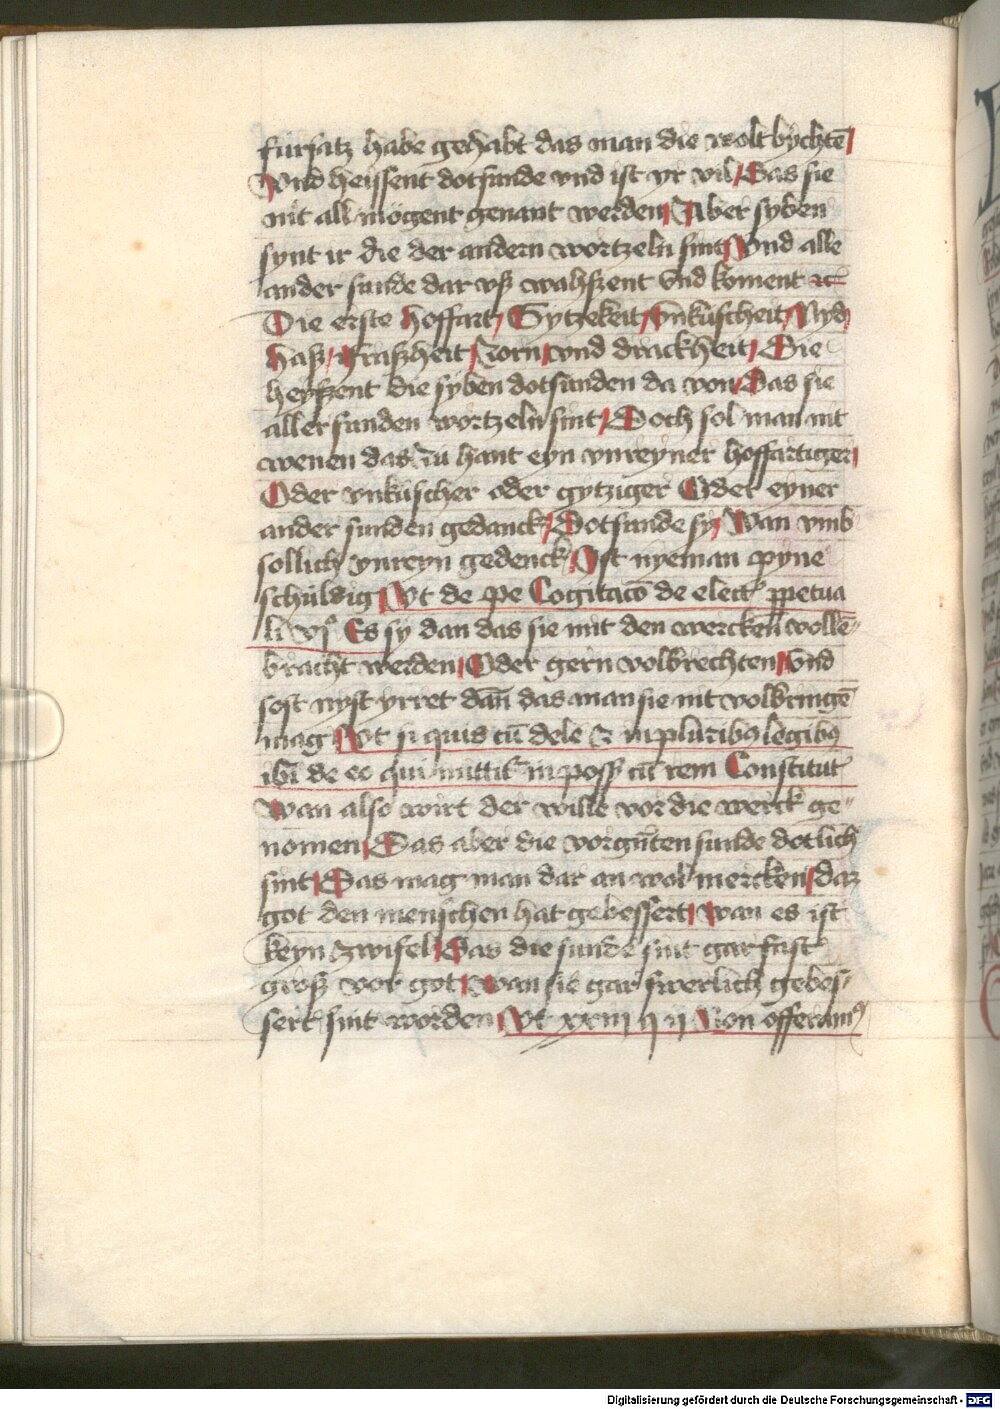 fursatz habe gehabt das man die wolt bychtē /
Vnd heissent dotsunde vnd ist yr vil / Das sie
nit all mögent genant werden / Aber syben
synt ir die der andern wortzeln sint / Vnd alle
ander sunde dar vß wahßent vnd koment ꝛc
Die erste hoffart / Gytzekeit / Vnkuscheit / Nyd /
haß / Fraßheit / Zorn / vnd drackheit / Die
heyßent die syben dotsunden da von / Das sie
aller sunden wortzeln sint / Doch sol man nit
wenen das zu hant eyn vnreyner hoffartiger /
Oder vnkuscher oder gytziger Oder eyner
ander sunden gedanck / Dotsunde sy / Wan vmb
sollich vnreyn gedenck / Ist nyeman pyne
schuldig / Vt de pe Cogitacō de elect ꝑpetua
li Es sy dan das sie mit den wercken vollē-
bracht werden / Oder gern volbrechten / Vnd
sost nyst yrret dan̄ das man sie nit volbringē
mag / Vt si quis cū dele & in pluribꝰ legibꝰ
ibi de eo qui mittit in poss cū rem Constitut
Wan also wirt der wille vor die werck ge-
nomen / Das aber die vorgn̄ten sunde dotlich
sint / Das mag man dar an wol mercken / daz
got den menschen hat gebessert / wan es ist
keyn zwifel / Das die sunde sint gar fast
groß vor got / wan sie gar swerlich gebes-
sert sint worden / Vt xxiii q ii Non offeramꝰ
Digitalisierung gefördert durch die Deutsche Forschungsgemeinschaft - DFG